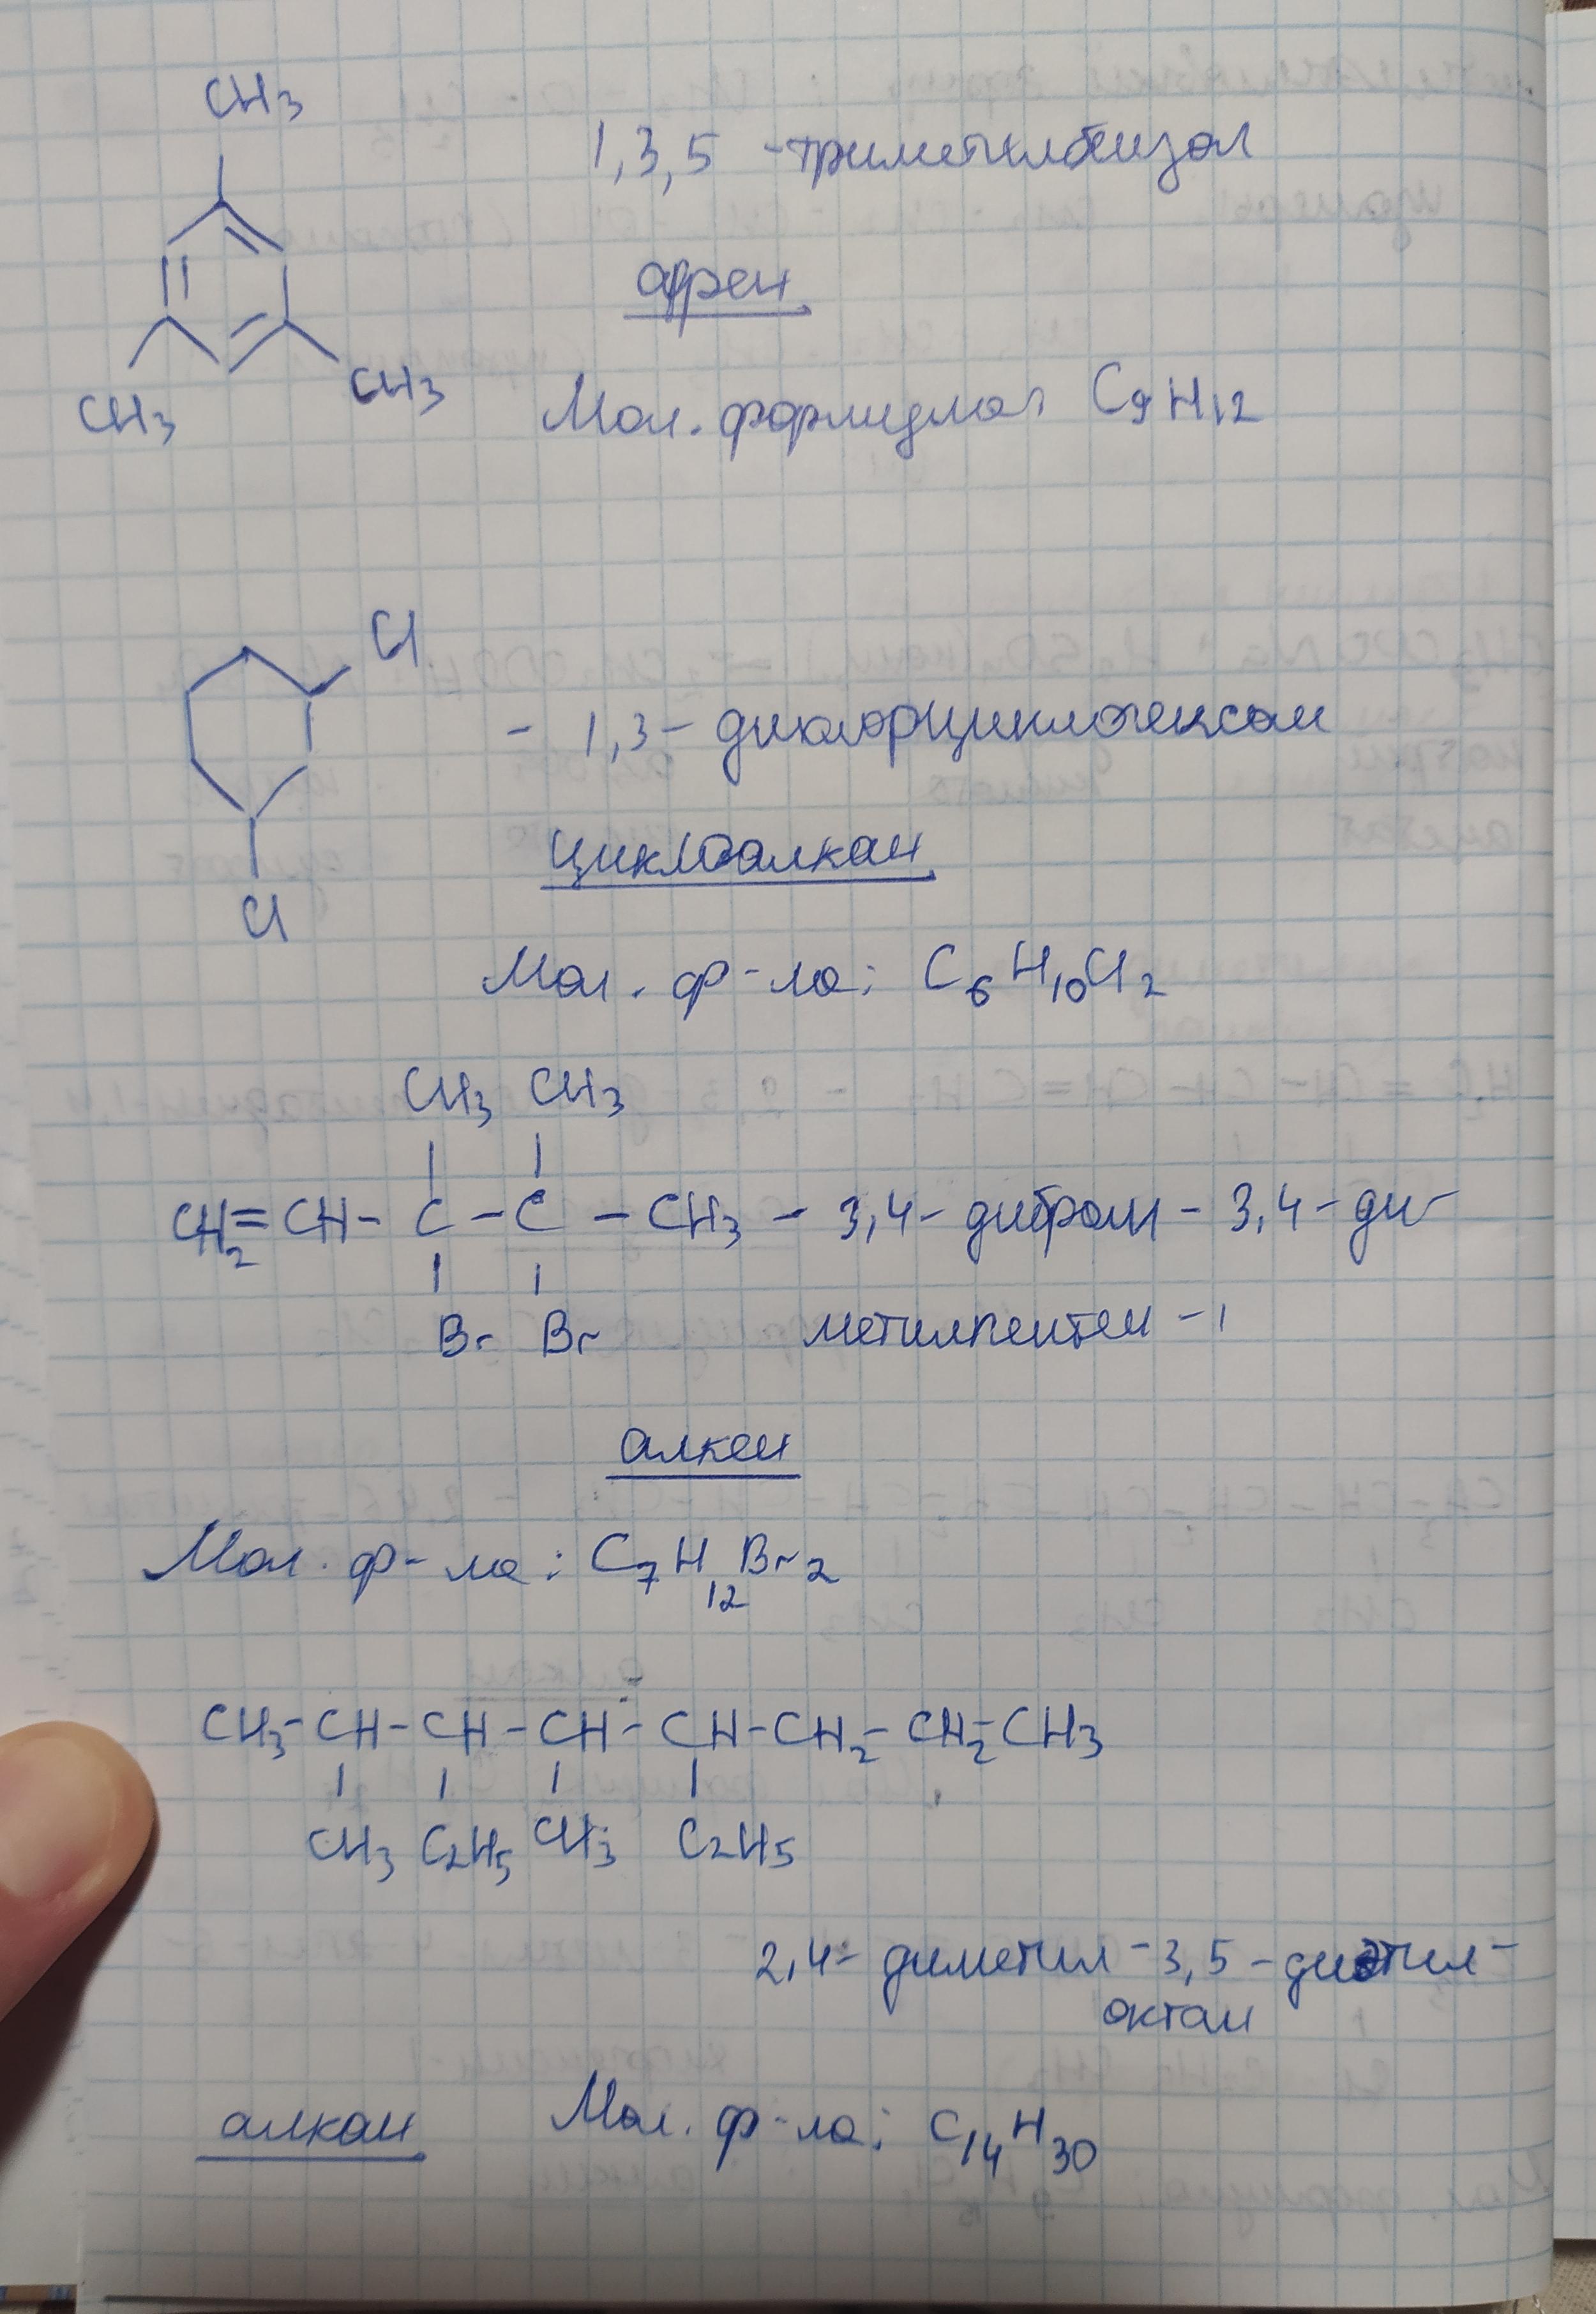 CH3
1,3,5 -триметилбензол
арен
CH3
CH3
Мол. формула: C9H12
Cl
- 1,3- дихлорциклогексан
Cl
циклоалкан
Мол. ф-ла: C6H10Cl2
CH3 CH3
CH2=CH-C-C-CH3 - 3,4- дибром - 3,4- ди-
Br Br
метилпентен -1
алкен
Мол. ф-ла: C7H12Br2
CH3-CH-CH-CH-CH-CH2-CH2-CH3
CH3 C2H5 CH3 C2H5
2,4- диметил -3,5 -диэтил-
октан
алкан Мол. ф-ла: C14H30